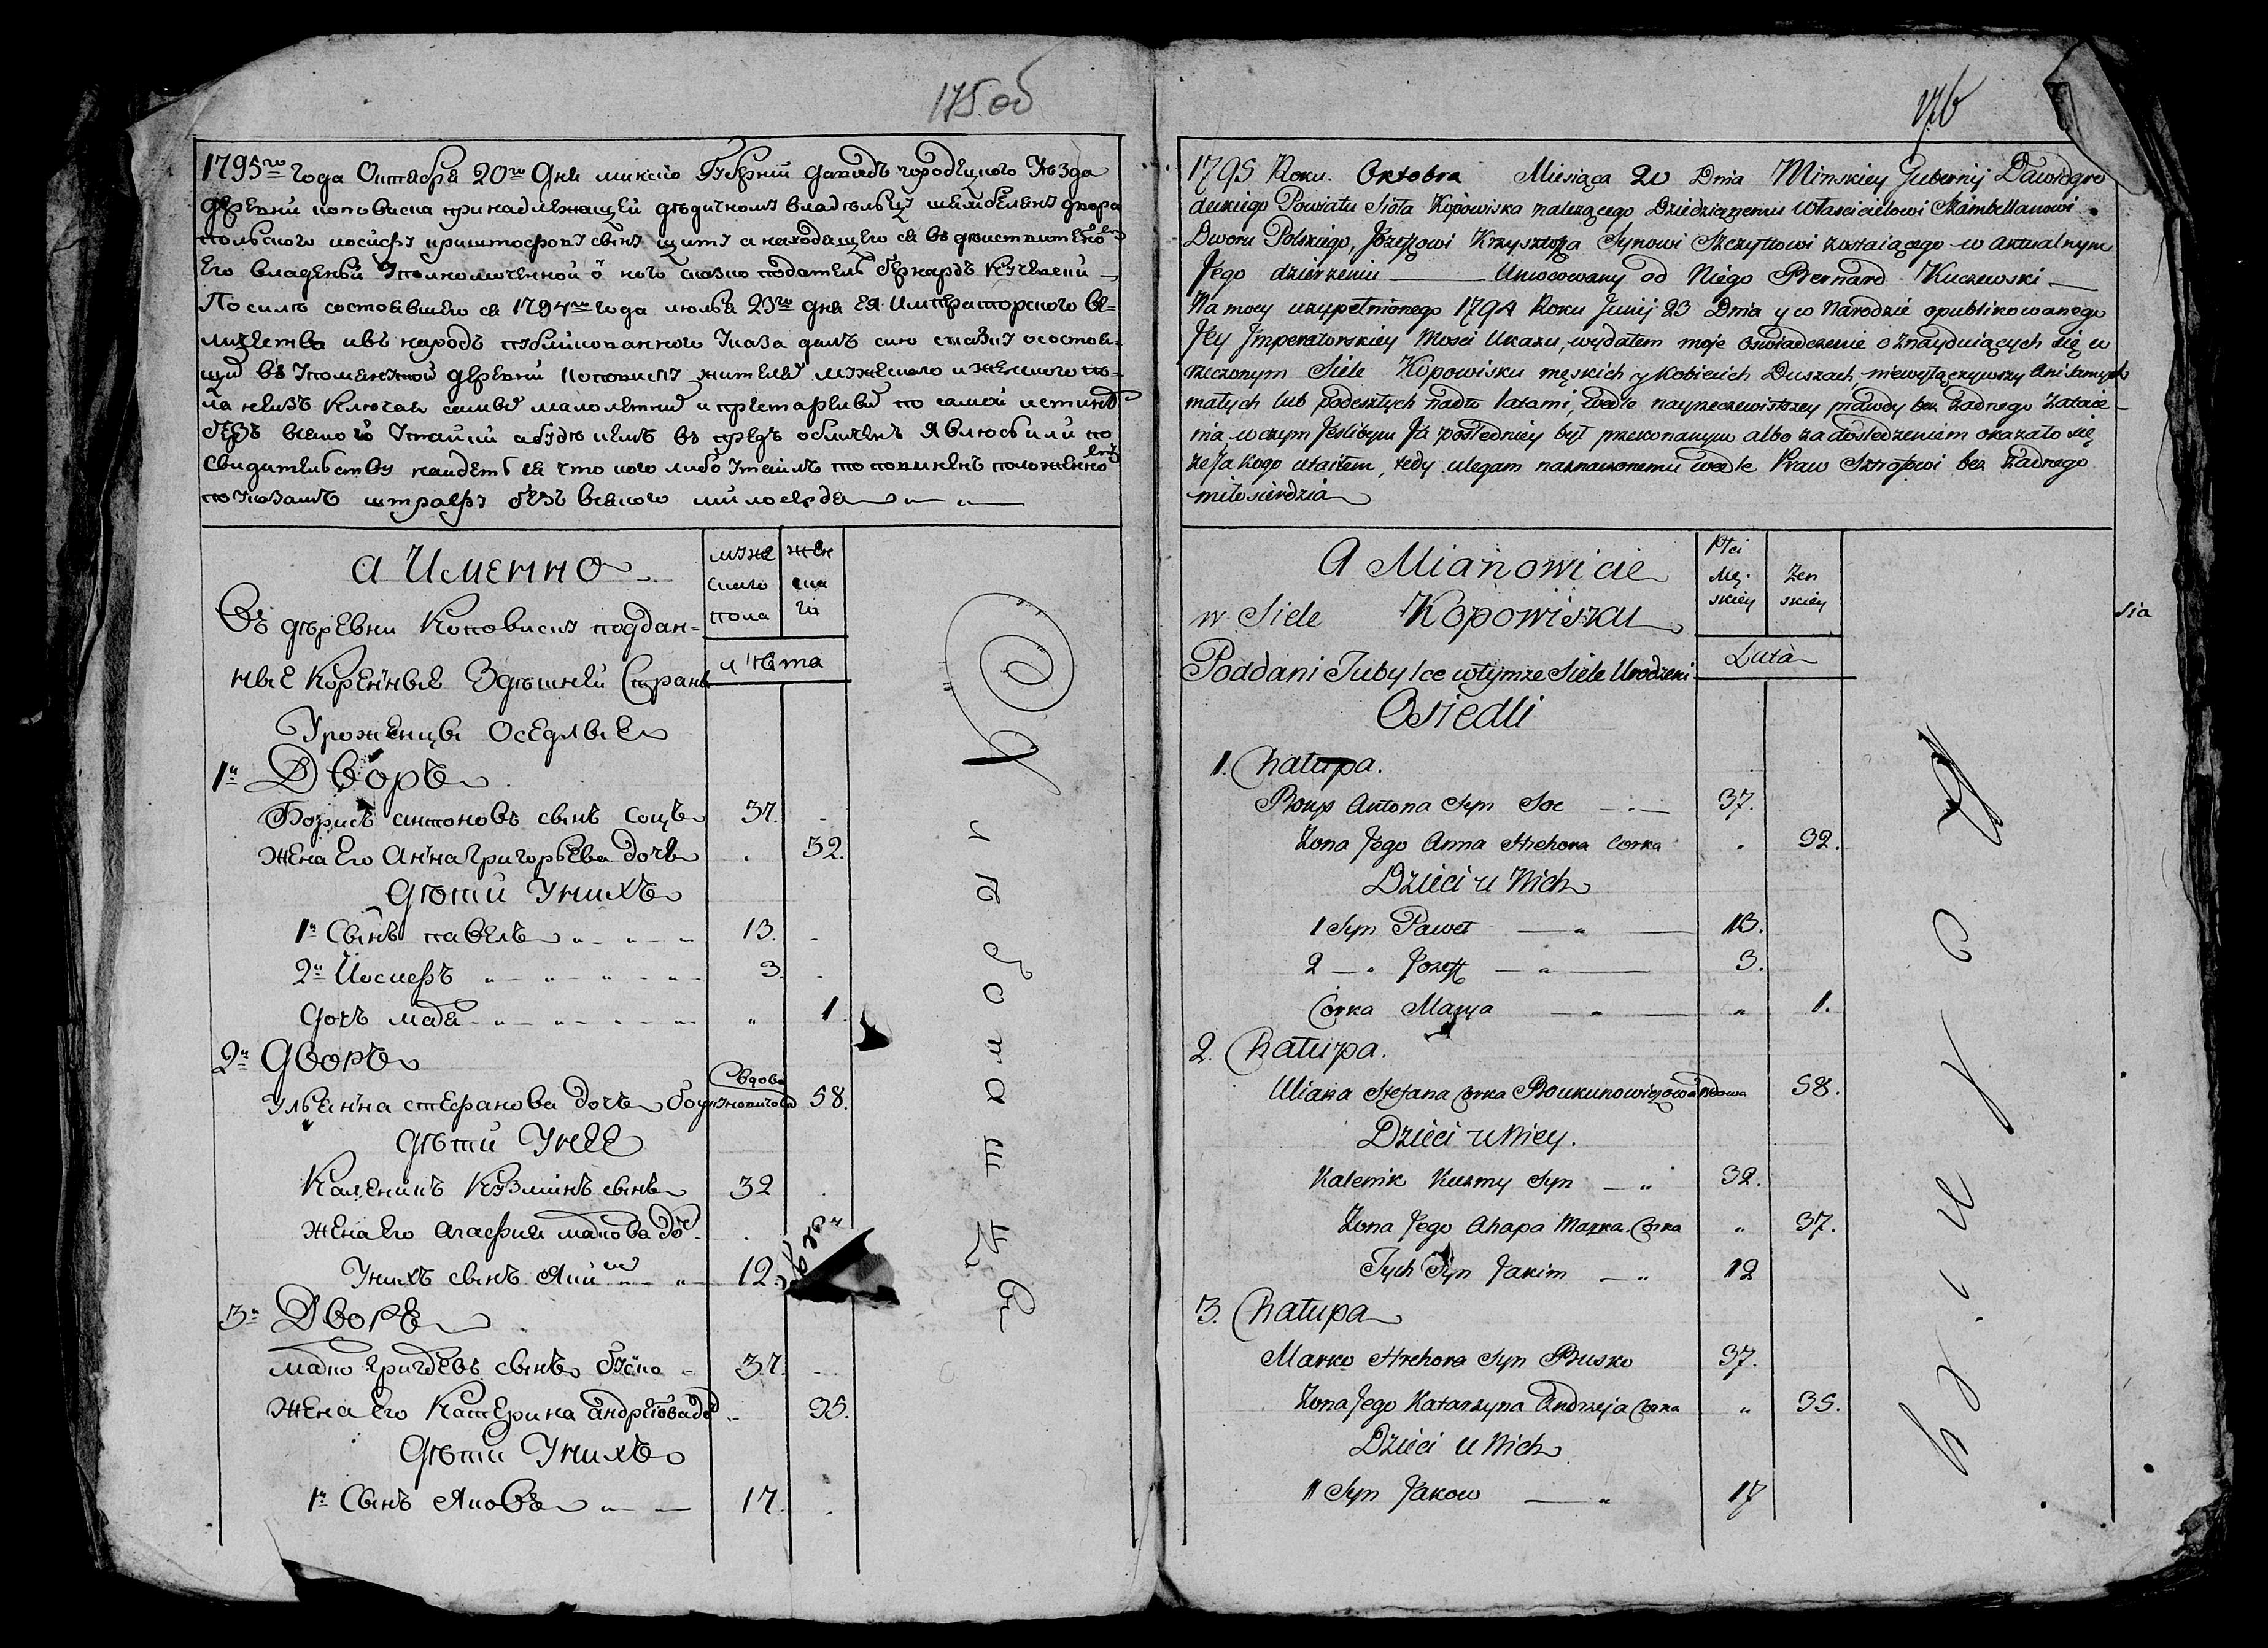 175 об
1795го года Октября 20го Дня минской Губернии давидъ городецкого Уезда
деревни коповиска принадлежащей дедичному владельцу шамбеляну двора
польского иосифу криштофову сыну щиту а находящего ся въ действительно
его владении Уполномоченной о него сказко податель бернардъ Кучевски
По силе состоявшего ся 1794го года июня 23го дня ея императорского ве-
личества и въ народъ публикованного Указа далъ сию сказку о состоя-
щих въ Упомянутой деревни Коповиску жителей мужеского и женского по-
ла не изъ ключая самых малолетних и престарелых по самой истинне
безъ всякой Утайки а буду кемъ въ предъ обличенъ Я влюс или по
свидительству найдетъ ся что кого либо Утаилъ то повиненъ положенно
по указамъ штрафу безъ всякого милосердия
а Именно
муже
ского
пола
жен
ска
го
Въ деревни Коповиску поддан-
лѣта
ные Коренные Здешней Страны
Уроженцы Оседлые
1й Дворъ
Борисъ антоновъ сынъ Соцъ 37.
жена его Анна Григорьева дочь 32.
дети У нихъ
1й Сынъ павелъ 13.
2й Иосифъ 3.
дочъ мария 1
2й Дворъ
Ульянна стефанова дочь боукуновичова вдова 58.
дети У нее
Каленикъ Кузминъ сынъ 32
жена его агафия маркова доч
У нихъ сынъ Яким 12.
3й Дворъ
марко григоревъ сынъ буско 37.
жена его Катерина андреева до 35.
дети У нихъ
1й Сынъ Яковъ 17.
176
1795 Roku. Oktobra Miesiąca 20 Dnia Minskiey Gubernij Dawidgro
deckiego Powiatu Sioła Kopowiska nalezącego Dziedzicznemu Włascicielowi Szambellanowi
Dworu Polskiego, Józeffowi Krzysztofa Synowi Szczyttowi zostaiącego w aktualnym
Jego dzierzeniu Umocowany od Niego Bernard Kuczewski
Na mocy uzupełnionego 1794 Roku Junij 23 Dnia y w Narodzie opublikowanego
Jey Jmperatorskiey Mosci Ukazu, wydałem moje Oswiadczenie o znayduiących się w
rzeczonym Siele Kopowisku męskich y Kobiecich Duszach, niewyłączywszy Ani samych
małych lub podeszłych nadto latami, wedle nayrzeczewistszey prawdy bez zadnego zataie-
nia, w czym Jeslibym Ja posledniey był przekonanym albo za dosledzeniem okazało się
ze Ja kogo utaiłem, tedy ulegam naznaczonemu wedle Praw Sztroffowi bez zadnego
miłosierdzia
A Mianowicie
Płci
Mę-
skiey
Zen
skiey
w Siele Kopowisku
sia
Lata
Poddani Tubylce w tymze Siele Urodzeni
Osiedli
1. Chałupa.
Borys Antona Syn Soc 37.
Zona Jego Anna Hrehora Corka 32.
Dzieci u Nich
1 Syn Paweł 13.
2 Jozeff 3.
Corka Marya 1.
2. Chałupa.
Uliana Stefana Corka Boukunowiczowa Wdowa 58.
Dzieci u Niey.
Kalenik Kuzmy Syn 32.
Zona Jego Ahapa Marka Corka 37.
Tych Syn Jakim 12
3. Chałupa
Marko Hrehora Syn Busko 37.
Zona Jego Katarzyna Andrzeja Corka 35.
Dzieci u Nich
1 Syn Jakow 17